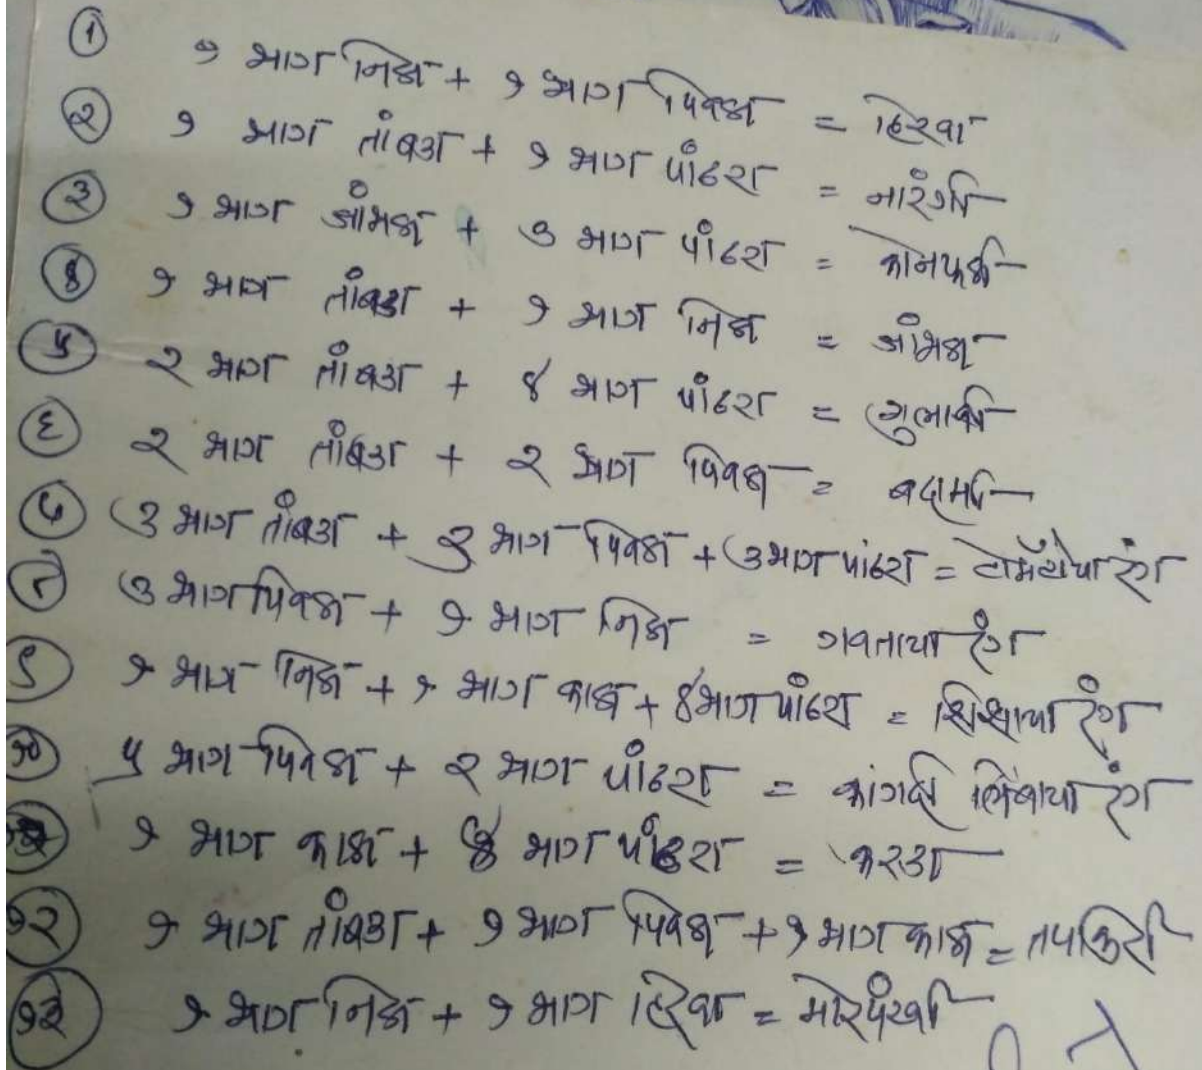 १ १ भाग निळा + १ भाग पिवळा = हिरवा
२ १ भाग तांबडा + १ भाग पांढरा = नारंगी
३ १ भाग जांभळा + ३ भाग पांढरा =
४ १ भाग तांबडा + १ भाग निळा = जांभळा
५ २ भाग तांबडा + ४ भाग पांढरा = गुलाबी
६ २ भाग तांबडा + २ भाग पिवळा = बदामी
७ ३ भाग तांबडा + ३ भाग पिवळा + ३ भाग पांढरा = टोमॅटोचा रंग
८ ३ भाग पिवळा + १ भाग निळा = गवताचा रंग
९ १ भाग निळा + १ भाग काळा + ४ भाग पांढरा = शिशाचा रंग
१० ५ भाग पिवळा + २ भाग पांढरा = कागदी लिंबाचा रंग
१ भाग काळा + ४ भाग पांढरा = करडा
१२ १ भाग तांबडा + १ भाग पिवळा + १ भाग काळा = तपकिरी
१३ १ भाग निळा + १ भाग हिरवा = मोरपंखी